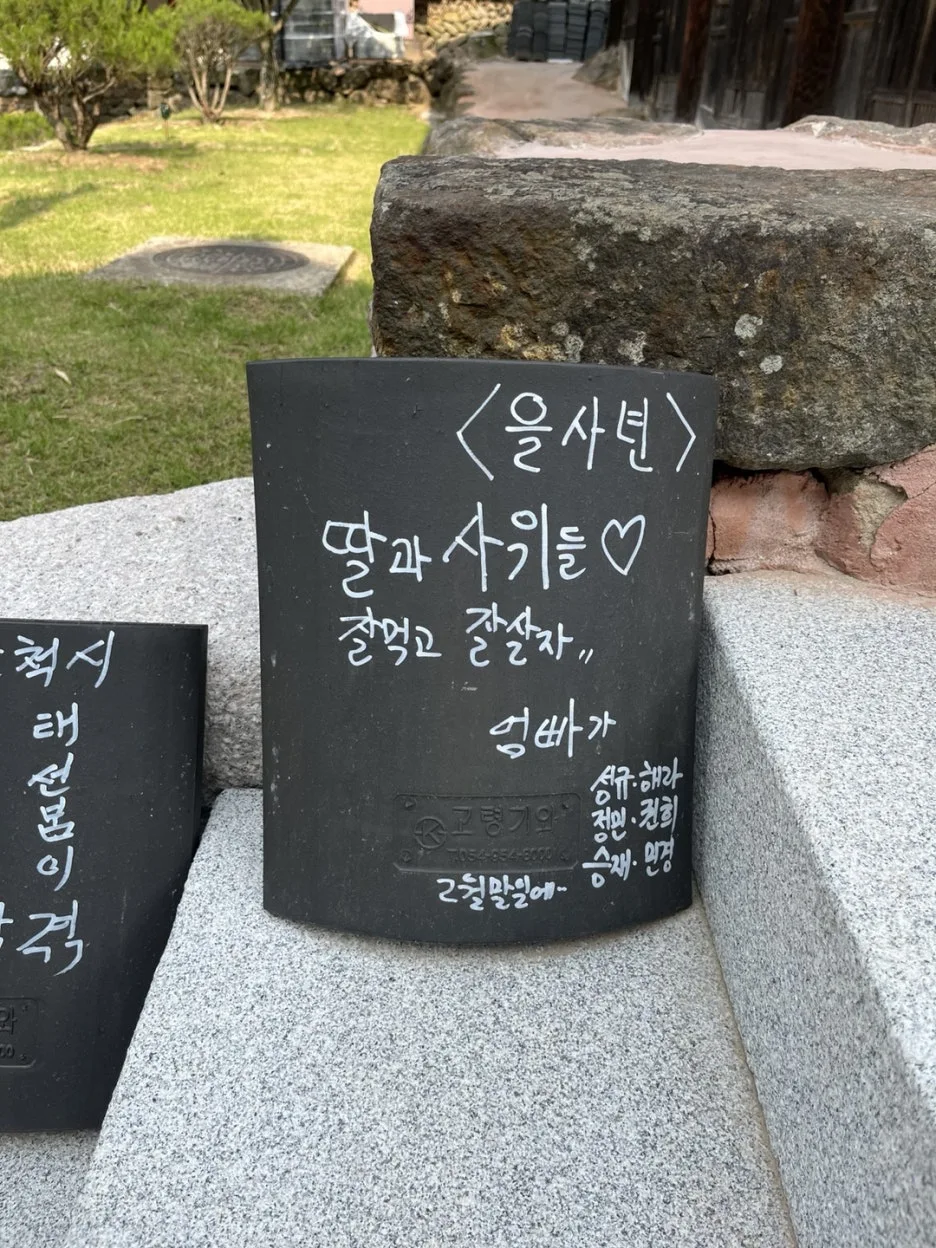 척시
태
선
봄
이
격
<을사년>
딸과 사위들♡
잘먹고 잘살자,,
엄빠가
성규·해라
정민·진희
승재·민경
2월말일에..
고령기와
T.054-954-8000